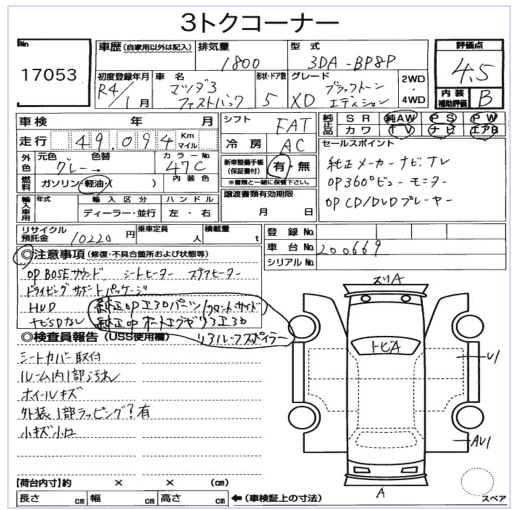 3トクコーナー
No
17053
車歴(自家用以外は記入) 排気量 1800 型式 3DA-BP8P
評価点 4.5
内装補助評価 B
初度登録年月 R4/1月 車名 マツダ3 ファストバック 形状・ドア数 5 グレード XD ブラックトーンエディション 2WD・4WD
車検 年 月 シフト FAT
純正品 SR 純AW PS PW カワ TV ナビ エアB
走行 49,094 Km マイル 冷房 AC
セールスポイント
純正メーカーナビナレ
OP360°ビューモニター
OP CD/DVDプレーヤー
外色 元色 グレー 色替 カラーNo. 47C
新車整備手帳(保証書付) 有・無
※書類と一緒に保管下さい。
燃料 ガソリン・軽油・( ) 内装色
譲渡書類有効期限 月 日
輸入車用 年式 輸入区分 ディーラー・並行 ハンドル 左・右
リサイクル預託金 10220円 乗車定員 人 積載量 t
登録No.
車台No. 200669
シリアルNo.
◎注意事項(修復・不具合箇所および状態等)
OP BOSEサウンド シートヒーター ステアヒーター
ドライビングサポートパッケージ
HUD 純正OPエアロパーツ(フロント、サイド
ナビSDカレ 純正OPオートエグゼリアエアロ
リアルーフスポイラー
◎検査員報告(USS使用欄)
シートカバー取付
ルーム内1部汚れ
ホイールキズ
外装1部ラッピング?有
小キズ小凹
スリA
トビA
U1
AU1
A
スペア
【荷台内寸】約 × × (cm)
長さ cm 幅 cm 高さ cm ←(車検証上の寸法)